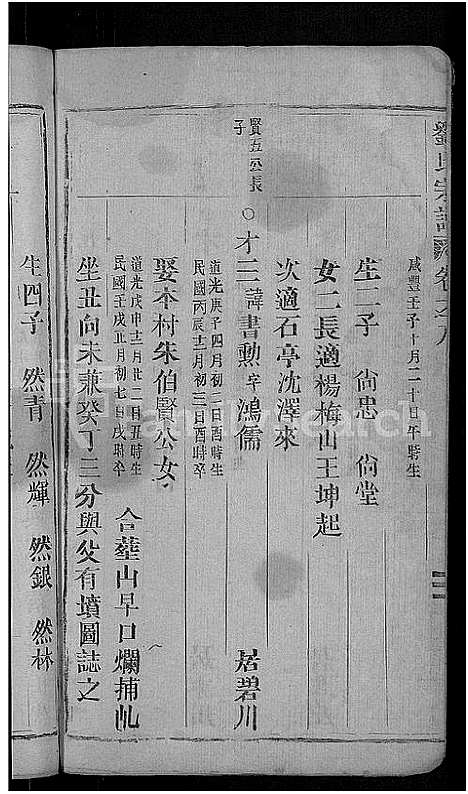 劉氏宗譜 卷之八
咸豐壬子十月二十日午時生
生二子 尙忠 尙堂
女二長適楊梅山王坤起
次適石亭沈澤來
賢五公長子
○才三 諱書勲字鴻儒 居碧川
道光庚子四月初二日酉時生
民國丙辰十二月初三日酉時卒
娶本村朱伯賢公女
道光戊申十二月廿二日丑時生
民國壬戌正月初七日戌時卒
合塟山早口爛捕乢
坐丑向未兼癸丁三分與父有墳圖誌之
生四子 然青 然輝 然銀 然林